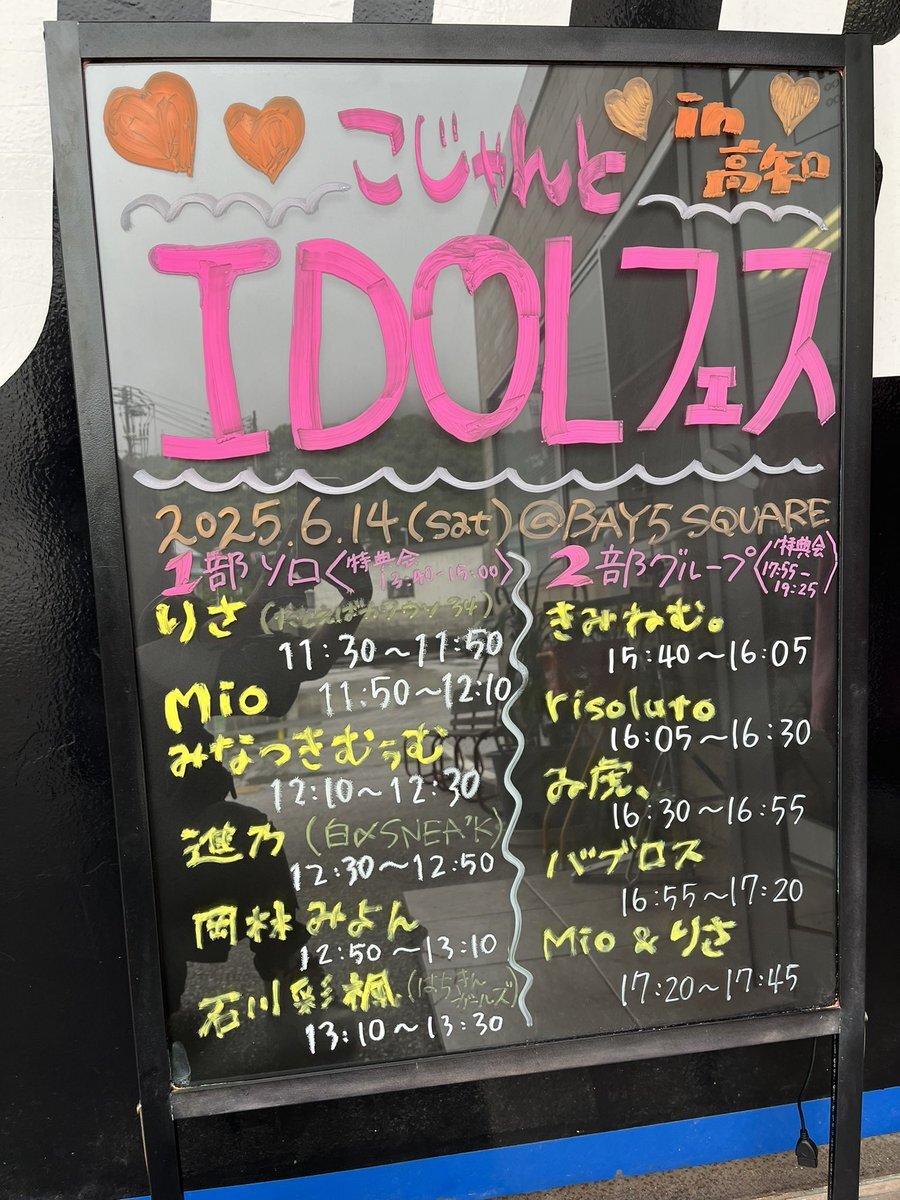 こじゃんと
in
高知
IDOLフェス
2025.6.14.(sat)@BAY5 SQUARE
1部ソロ〈特典会
12:40-15:00〉
りさ(たとえばカラウソ34)
11:30～11:50
Mio 11:50～12:10
みなつきむぅむ
12:10～12:30
進乃(白〆SNEA'K)
12:30～12:50
岡林みよん
12:50～13:10
石川彩楓(はちきん
ガールズ)
13:10～13:30
2部グループ〈特典会
17:55-
19:25〉
きみねむ。
15:40～16:05
risoluto
16:05～16:30
み虎、
16:30～16:55
バブロス
16:55～17:20
Mio & りさ
17:20～17:45